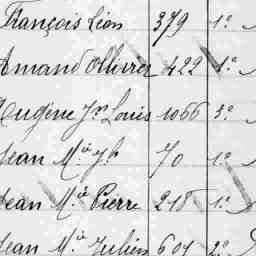 François Léon 379 1°
Amand Ollivier 422 1°
Eugène Jh Louis 1066 3°
Jean Mie Jh 70 1°
Jean Mie Pierre 218 1°
Jean Mie Julien 601 2°